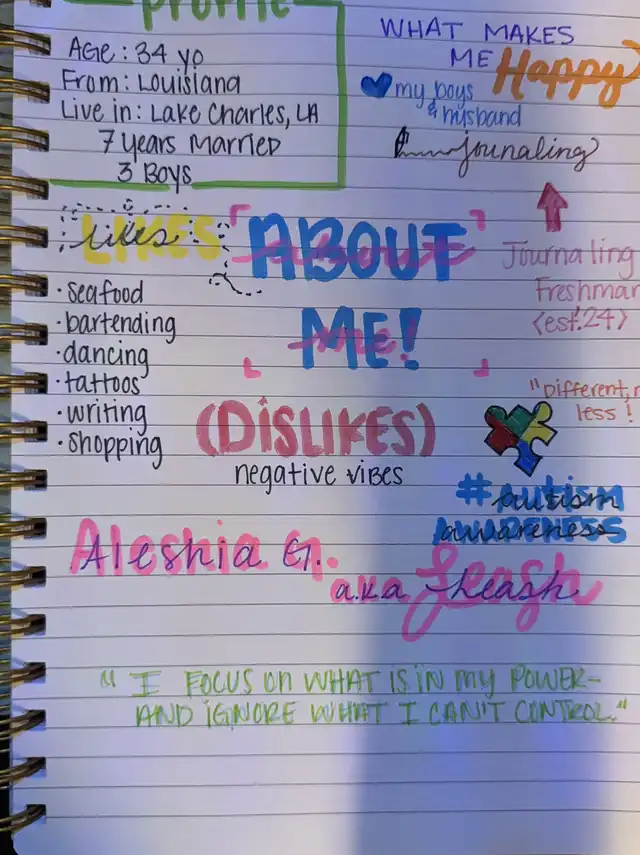 profile
Age: 34 yo
From: Louisiana
Live in: Lake Charles, LA
7 years Married
3 Boys
WHAT MAKES
ME Happy
my boys
& husband
jounaling
Journaling
Freshman
<est.24>
LIKES
likes
• seafood
• bartending
• dancing
• tattoos
• writing
• shopping
ABOUT
ME!
(DiSLIKES)
negative vibes
"Different, n
less!
#autism
awareness
Aleshia G.
a.k.a Leash
"I FOCUS on WHAT IS in my POWER-
AND iGNORE WHAT I CAN'T CONTROL."